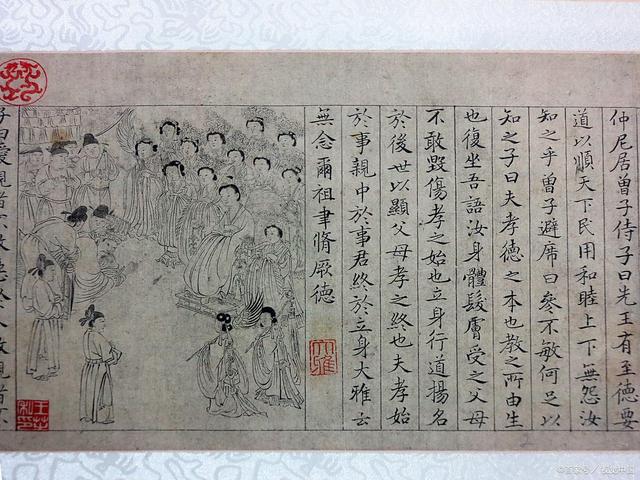 仲尼居曾子侍子曰先王有至德要
道以順天下民用和睦上下無怨汝
知之乎曾子避席曰參不敏何足以
知之子曰夫孝德之本也教之所由生
也復坐吾語汝身體髮膚受之父母
不敢毀傷孝之始也立身行道揚名
於後世以顯父母孝之終也夫孝始
於事親中於事君終於立身大雅云
無念爾祖聿脩厥德